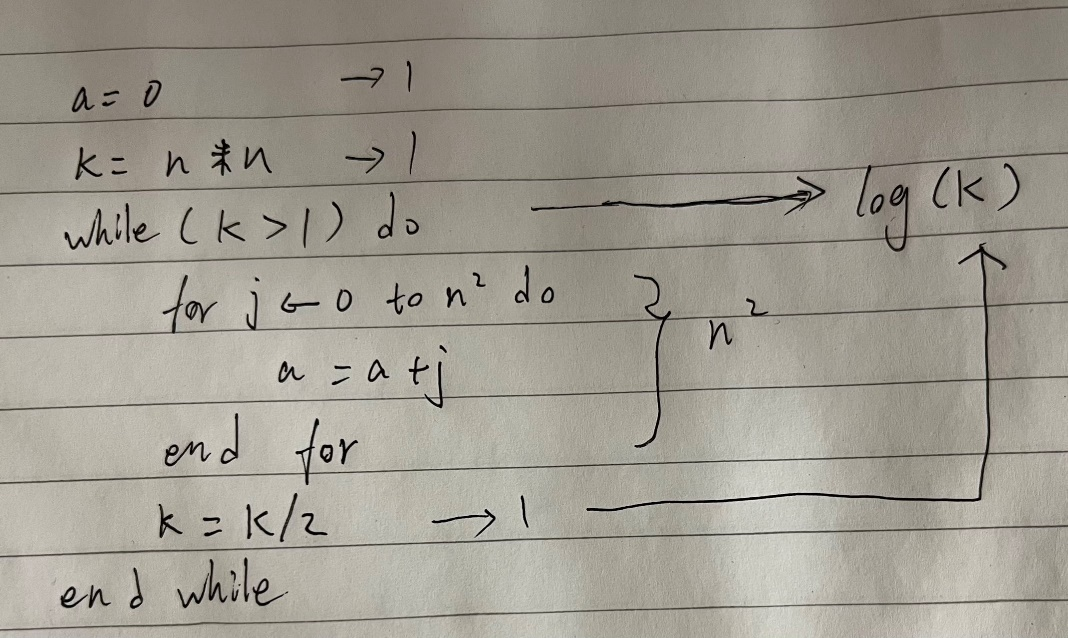 a = 0 → 1
k = n * n → 1
while (k > 1) do → log (k)
for j ← 0 to n² do
a = a + j } n²
end for
k = k/2 → 1
end while